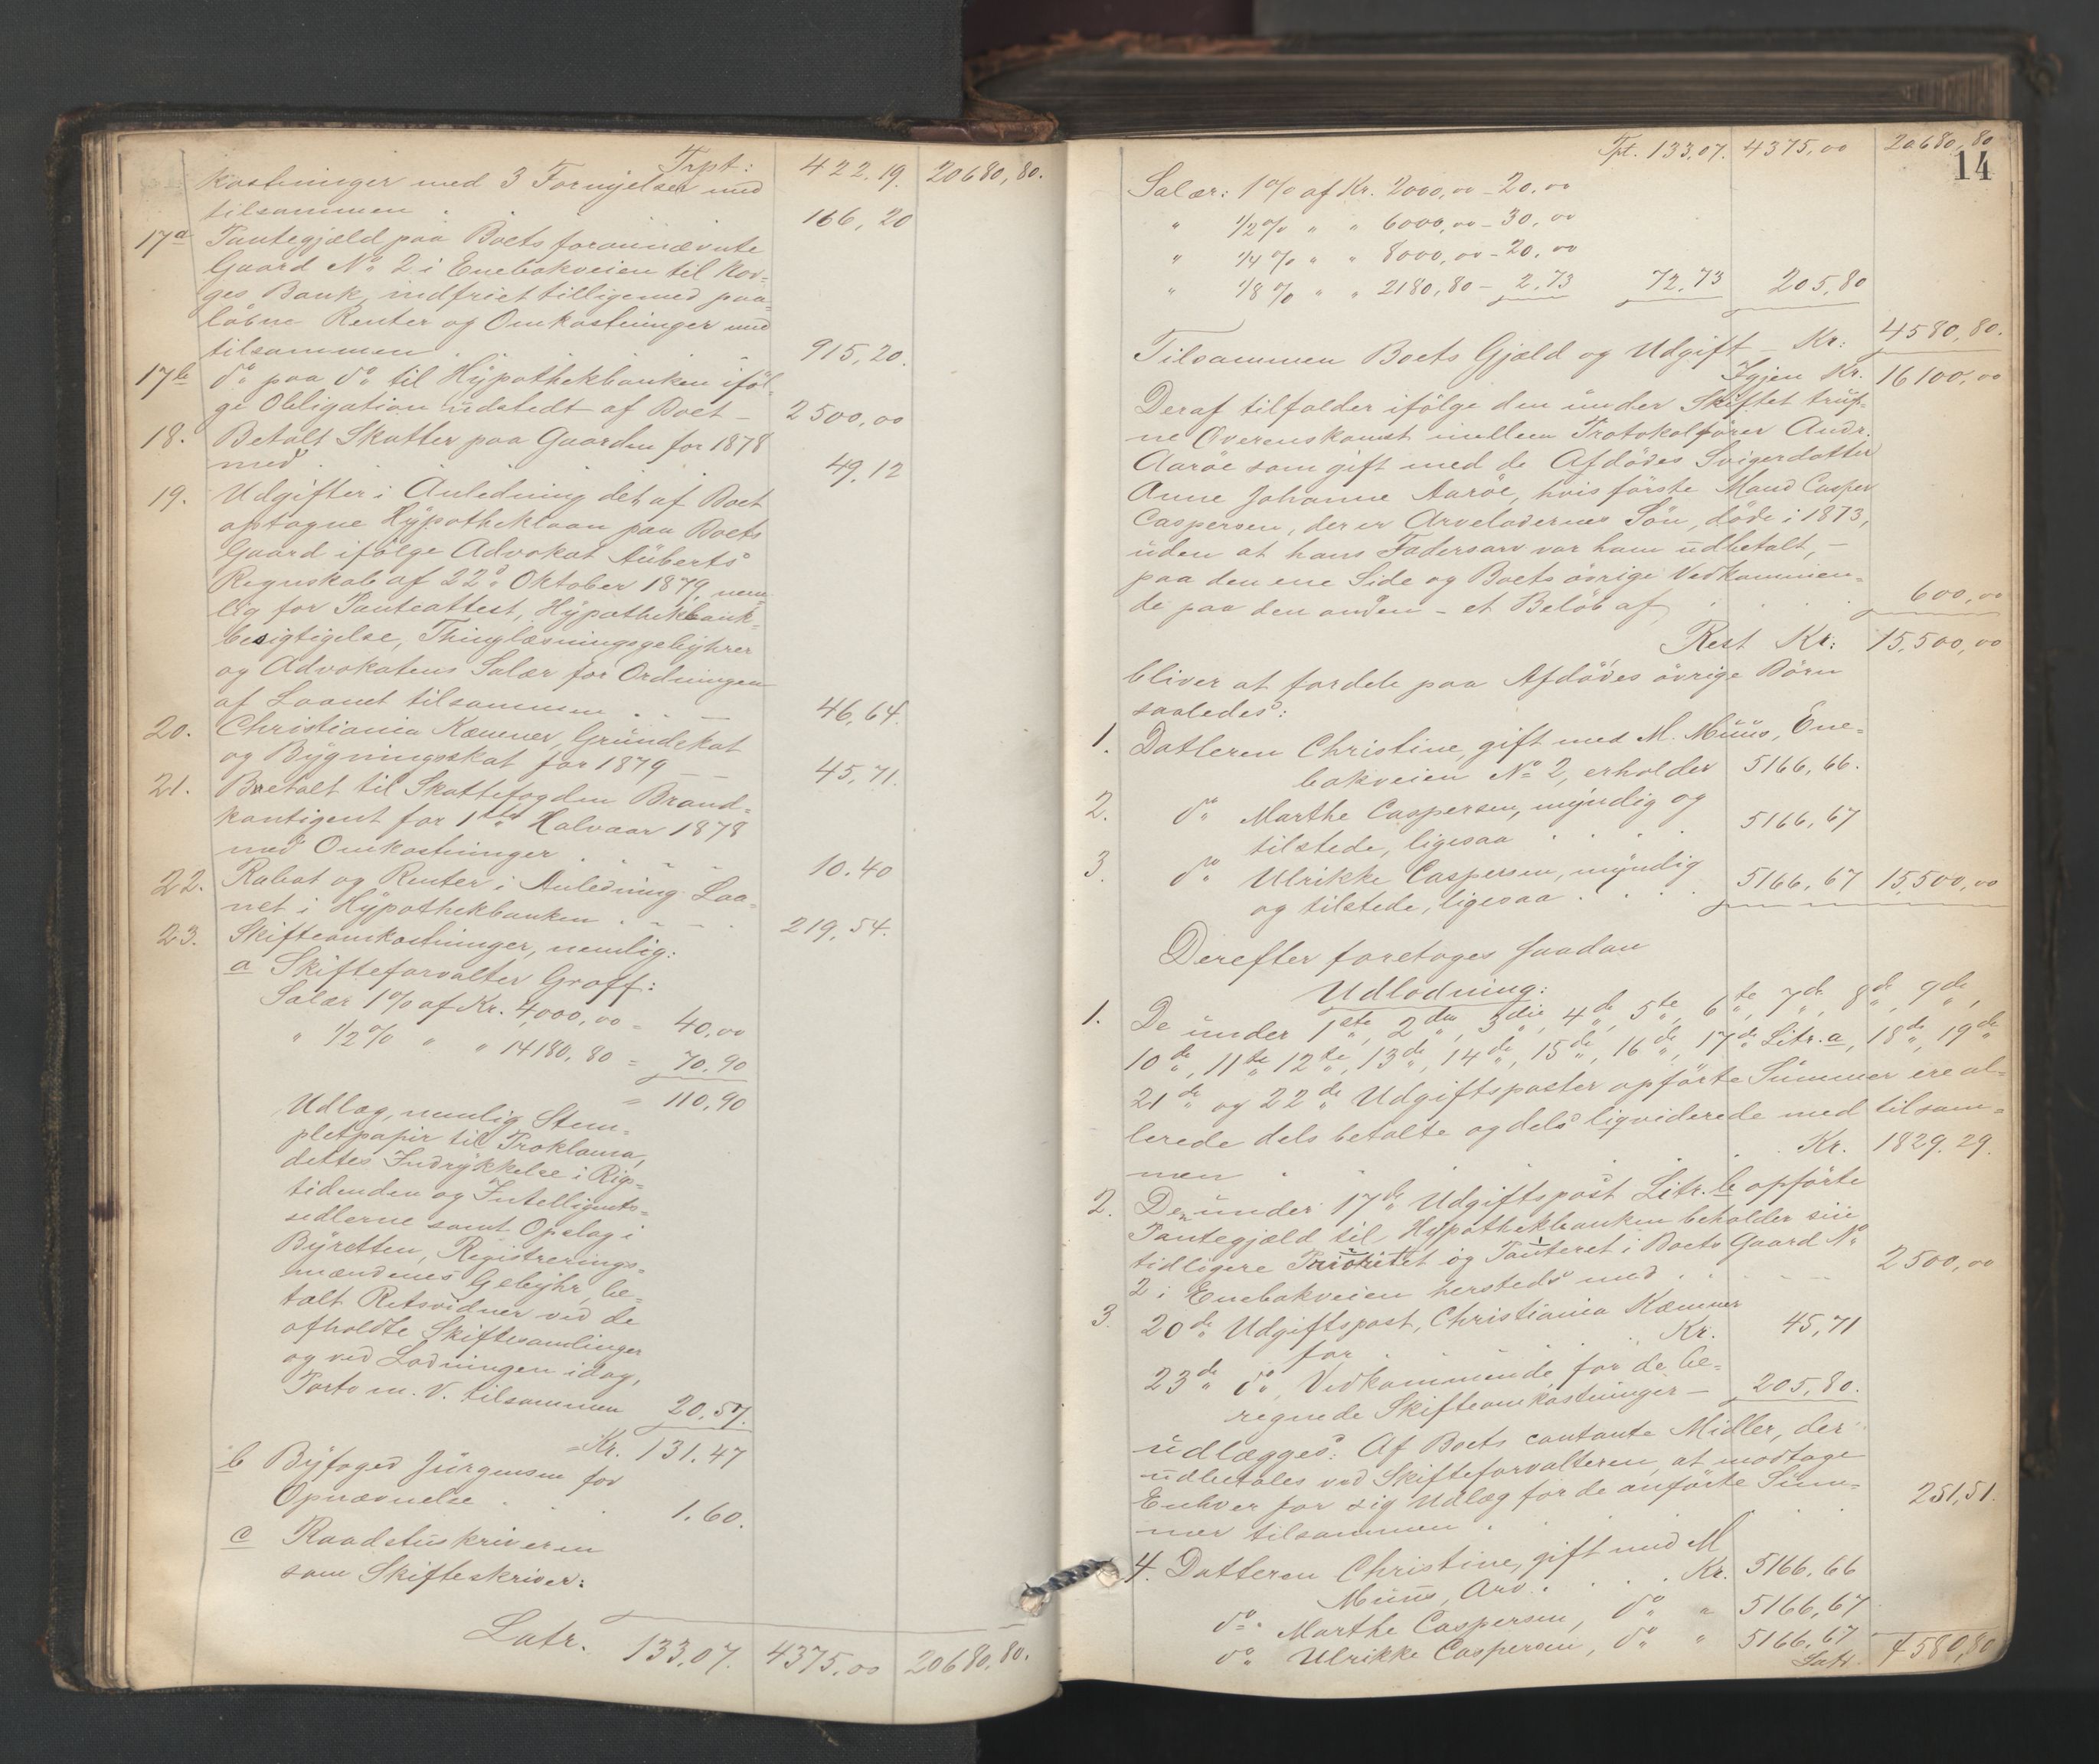 Trpt: 422.19. 20680,80.
kostninger med 3 Fornyelser med
tilsammen . 166,20
17a Pantegjæld paa Boets forannævnte
Gaard No 2 i Enebakveien til Nor-
ges Bank, indfriet tilligemed paa-
løbne Renter og Omkostninger med
tilsammen . 915,20.
17b do paa do til Hypothekbanken iføl-
ge Obligation udstedt af Boet — 2500,00
18. Betalt Skatter paa Gaarden for 1878
med . . . . 49,12
19. Udgifter i Anledning det af Boet
optagne Hypotheklaan paa Boets
Gaard ifølge Advokat Auberts
Regnskab af 22de Oktober 1879, nem-
lig for Panteattest, Hypothekbank-
besigtigelse, Thinglæsningsgebyhrer
og Advokatens Salær for Ordningen
af Laanet tilsammen . . — 46,64.
20. Christiania Kæmner, Grundskat
og Bygningsskat for 1879 — — 45,71.
21. Betalt til Skattefogden Brand-
kontigent for 1ste Halvaar 1878
med Omkostninger . . . . 10.40
22. Rabat og Renter i Anledning Laa-
net i Hypothekbanken . . . . 219,54.
23. Skifteomkostninger, nemlig:
a Skifteforvalter Graff:
Salær 1% af Kr. 4,000,00 = 40,00
" 1/2% " " 14180,80 = 70,90
= 110,90
Udlæg, nemlig Stem-
pletpapir til Proklama,
dettes Indrykkelse i Rigs-
tidenden og Intelligents-
sedlerne samt Opslag i
Byretten, Registrerings-
mændenes Gebyhr, be-
talt Retsvidner ved de
afholdte Skiftesamlinger
og ved Lodningen idag,
Porto m. V. tilsammen 20,57.
= Kr. 131.47
b Byfoged Jürgensen for
Opnævnelse . . . 1.60.
c Raadstuskriveren
som Skifteskriver:
Latr. 133,07. 4375,00 20680,80.
Tpt. 133,07. 4375,00 20680,80
14
Salær: 1% af Kr. 2000,00 - 20,00
" 1/2% " " 6000,00 - 30,00
" 1/4% " " 8000,00 - 20,00
" 1/8% " " 2180,80 - 2,73 72,73 205,80
Tilsammen Boets Gjæld og Udgift — Kr: 4580,80.
Igjen Kr. 16100,00
Deraf tilfalder ifølge den under Skiftet truf-
ne Overenskomst mellem Protokolfører Andr.
Aarøe som gift med de Afdødes Svigerdatter
Anne Johanne Aarøe, hvis første Mand Casper
Caspersen, der er Arveladernes Søn, døde i 1873,
uden at hans Fædersarv var ham udbetalt, —
paa den ene Side og Boets øvrige Vedkommen-
de paa den anden — et Beløb af . . . . 600,00
Rest Kr: 15,500,00
bliver at fordele paa Afdødes øvrige Børn
saaledes:
1. Datteren Christine, gift med M. Muus, Ene-
bakveien No 2, erholder 5166,66.
2. do Marthe Caspersen, myndig og
tilstede, ligesaa . . . . 5166,67
3. do Ulrikke Caspersen, myndig
og tilstede, ligesaa . . . . 5166,67 15,500,00
Derefter foretoges saadan
Udlodning:
1. De under 1ste, 2den, 3die, 4de, 5te, 6te, 7de, 8de, 9de,
10de, 11te, 12te, 13de, 14de, 15de, 16de, 17de Litr. a, 18de, 19de
21de og 22de Udgiftsposter opførte Summer ere al-
lerede dels betalte og dels liqviderede med tilsam-
men . . . . . Kr. 1829.29.
2. Den under 17de Udgiftspost Litr. b opførte
Pantegjæld til Hypothekbanken beholder sin
tidligere Prioritet og Panteret i Boets Gaard No
2 i Enebakveien hersteds med . . . 2500,00
3. 20de Udgiftspost, Christiania Kæmner
for . . . Kr. 45,71
23de do, Vedkommende for de be-
regnede Skifteomkostninger — 205,80.
udlægges: Af Boets contante Midler, der
udbetales ved Skifteforvalteren, at modtage
Enhver for sig Udlæg for de anførte Sum-
mer tilsammen . . . 251,51.
4. Datteren Christine, gift med M
Muus, Arv . . . . Kr. 5166,66
do Marthe Caspersen, do " 5166,67
do Ulrikke Caspersen, do " 5166,67
Latr. 4580,80